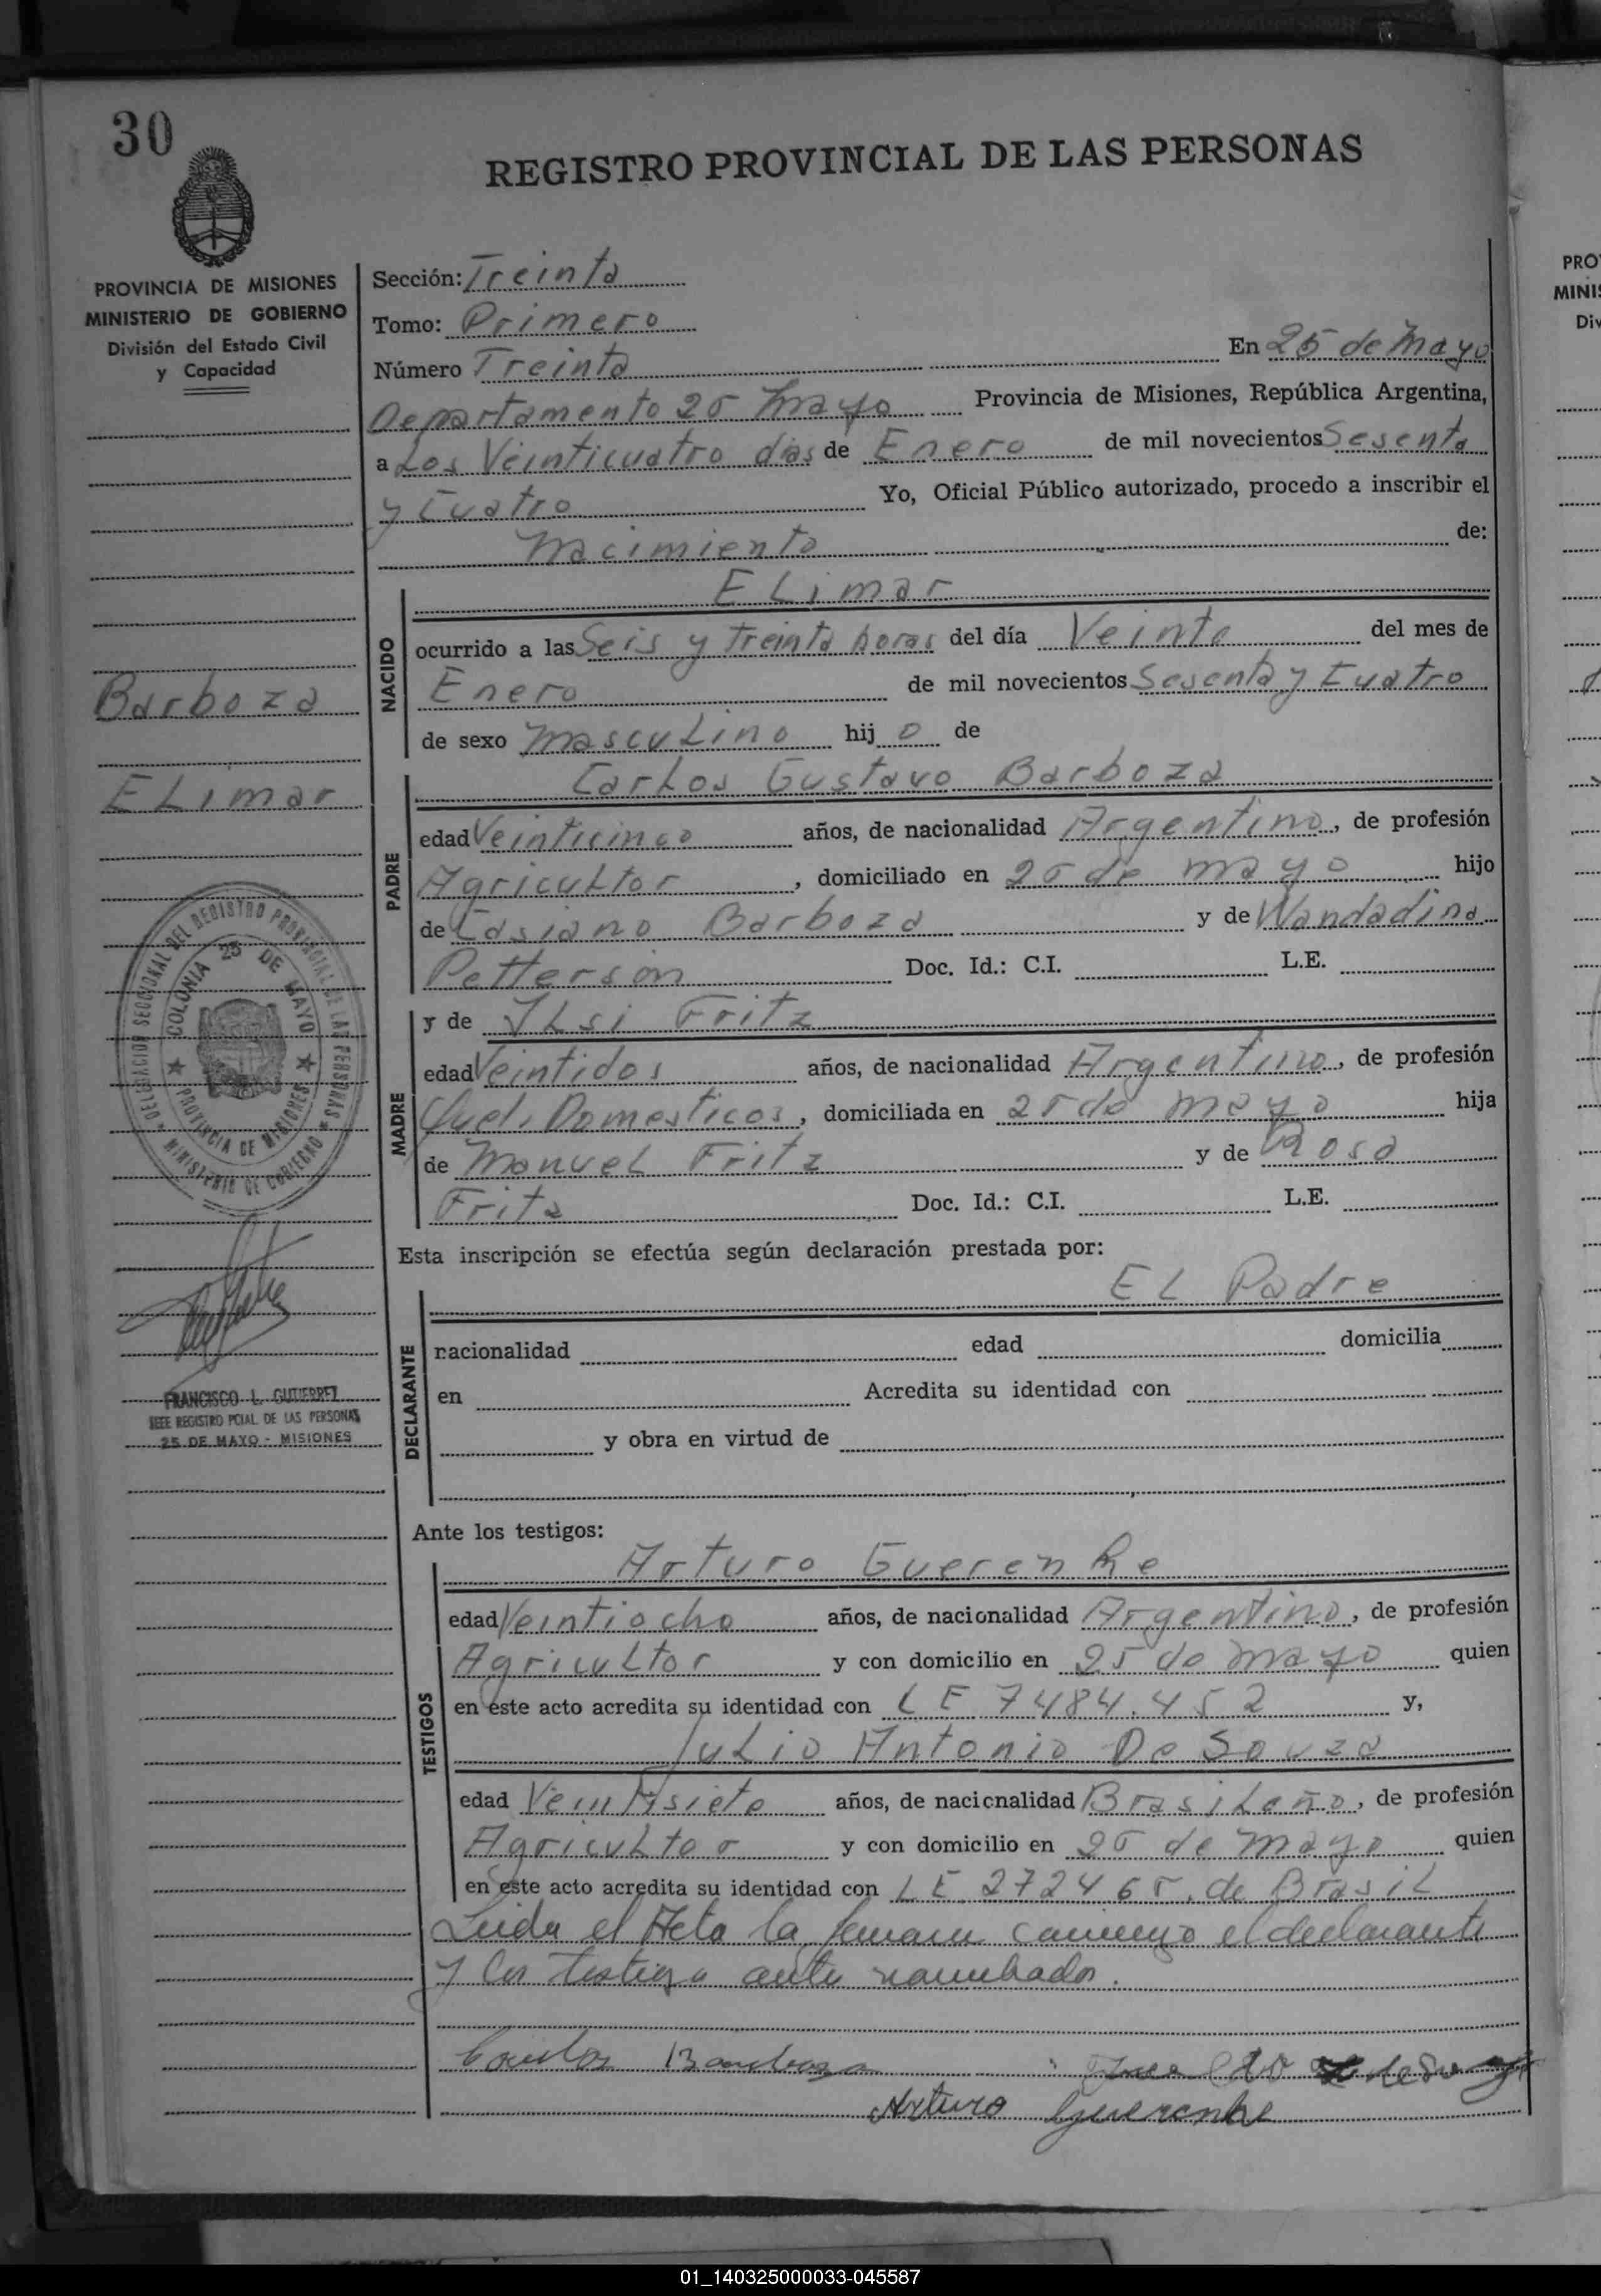 30
REGISTRO PROVINCIAL DE LAS PERSONAS
PROVINCIA DE MISIONES
MINISTERIO DE GOBIERNO
División del Estado Civil
y Capacidad
Barboza
ELimar
DELEGACION SECCIONAL DEL REGISTRO PROVINCIAL DE LAS PERSONAS
MINISTERIO DE GOBIERNO
COLONIA 25 DE MAYO
PROVINCIA DE MISIONES
FRANCISCO L. GUTIERREZ
JEFE REGISTRO PCIAL. DE LAS PERSONAS
25 DE MAYO - MISIONES
Sección: Treinta
Tomo: Primero
Número Treinta En 25 de Mayo
Departamento 25 Mayo Provincia de Misiones, República Argentina,
a Los Veinticuatro días de Enero de mil novecientos Sesenta
y Cuatro Yo, Oficial Público autorizado, procedo a inscribir el
Nacimiento de:
NACIDO
ELimar
ocurrido a las Seis y treinta horas del día Veinte del mes de
Enero de mil novecientos Sesenta y Cuatro
de sexo MascuLino hijo de
PADRE
CarLos Gustavo Barboza
edad Veinticinco años, de nacionalidad Argentino, de profesión
AgricuLtor, domiciliado en 25 de mayo hijo
de Casiano Barboza y de Wandadina
Petterson Doc. Id.: C.I. L.E.
MADRE
y de ILsi Fritz
edad Veintidos años, de nacionalidad Argentino, de profesión
Domesticos, domiciliada en 25 de mayo hija
de ManueL Fritz y de Rosa
Fritz Doc. Id.: C.I. L.E.
Esta inscripción se efectúa según declaración prestada por:
DECLARANTE
EL Padre
nacionalidad edad domicilia
en Acredita su identidad con
y obra en virtud de
Ante los testigos:
TESTIGOS
Arturo Guerenke
edad Veintiocho años, de nacionalidad Argentino, de profesión
AgricuLtor y con domicilio en 25 de mayo quien
en este acto acredita su identidad con LE 7484.452 y,
JuLio Antonio De Souza
edad Veintisiete años, de nacionalidad BrasiLeño, de profesión
AgricuLtor y con domicilio en 25 de mayo quien
en este acto acredita su identidad con LE 272465. de BrasiL
Leida el Acta la firman conmigo el declarante
y los testigos ante nombrados.
Carlos Barboza
Arturo Guerenke
PRO
MINIS
Div
01_140325000033-045587